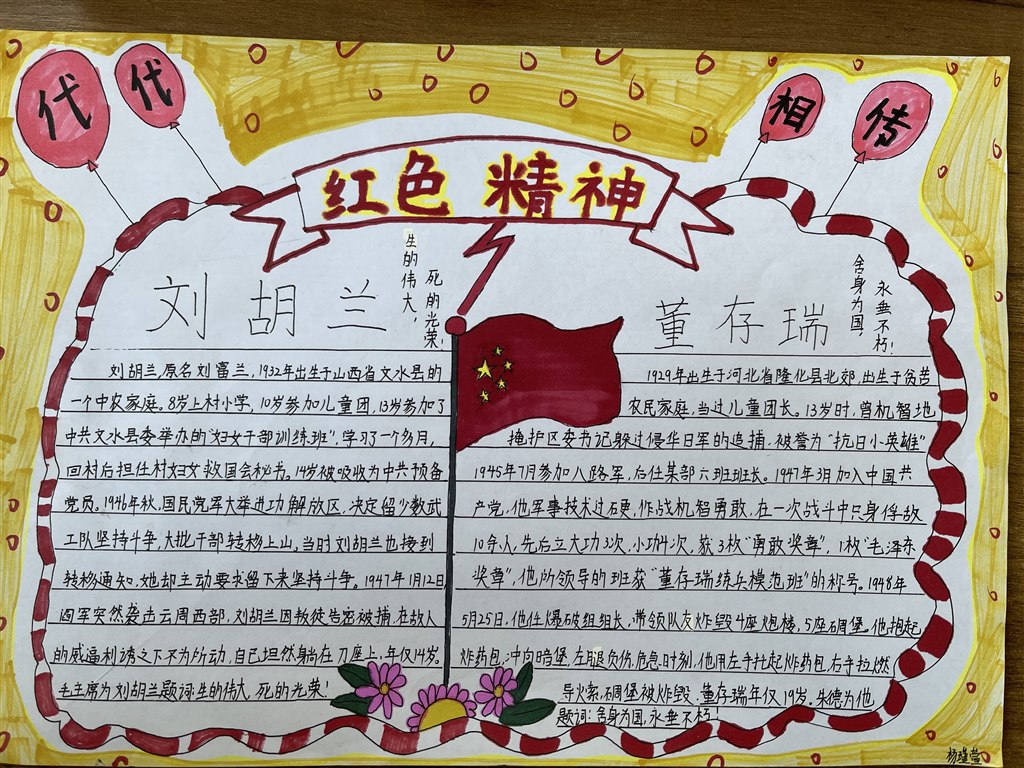 代代相传
红色精神
刘胡兰
生的伟大,
死的光荣!
刘胡兰,原名刘富兰,1932年出生于山西省文水县的
一个中农家庭。8岁上村小学,10岁参加儿童团,13岁参加了
中共文水县委举办的“妇女干部训练班”,学习了一个多月,
回村后担任村妇女救国会秘书。14岁被吸收为中共预备
党员。1946年秋,国民党军大举进功解放区,决定留少数武
工队坚持斗争,大批干部转移上山。当时刘胡兰也接到
转移通知,她却主动要求留下来坚持斗争。1947年1月12日
阎军突然袭击云周西部,刘胡兰因叛徒告密被捕,在敌人
的威逼利诱之下不为所动,自己坦然躺在刀座上,年仅14岁。
毛主席为刘胡兰题词:生的伟大,死的光荣!
董存瑞
舍身为国,
永垂不朽!
1929年出生于河北省隆化县北郊,出生于贫苦
农民家庭,当过儿童团长。13岁时,曾机智地
掩护区委书记躲过侵华日军的追捕,被誉为“抗日小英雄”
1945年7月参加八路军,后任某部六班班长。1947年3月加入中国共
产党,他军事技术过硬,作战机智勇敢,在一次战斗中只身俘敌
10余人,先后立大功3次,小功4次,获3枚“勇敢奖章”,1枚“毛泽东
奖章”,他所领导的班获“董存瑞练兵模范班”的称号。1948年
5月25日,他任爆破组组长,带领队友炸毁4座炮楼,5座碉堡。他抱起
炸药包,冲向暗堡,左腿负伤,危急时刻,他用左手托起炸药包,右手拉燃
导火索,碉堡被炸毁,董存瑞年仅19岁。朱德为他
题词:舍身为国,永垂不朽!